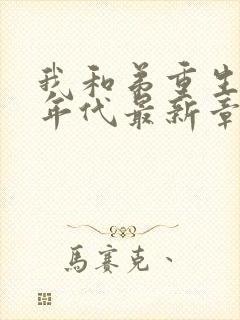 我和弟重生
年代最新章
馬賽克、